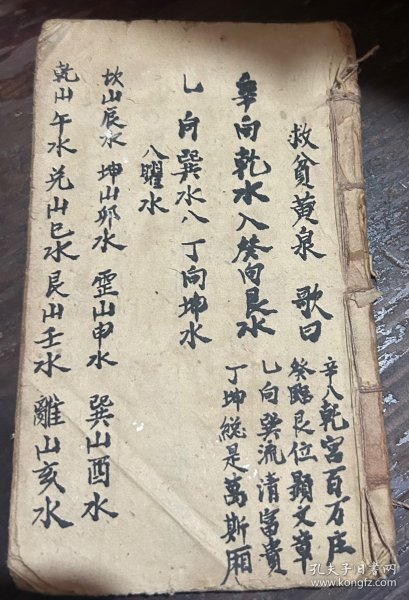 救貧黄泉 歌曰
辛入乾宮百万庄
癸臨艮位顯文章
乙向巽流清富貴
丁坤総是萬斯廂
辛向乾水入癸向艮水
乙向巽水八丁向坤水
八曜水
坎山辰水 坤山卯水 震山申水 巽山酉水
乾山午水 兑山巳水 艮山壬水 離山亥水
孔夫子旧书网
www.kongfz.com